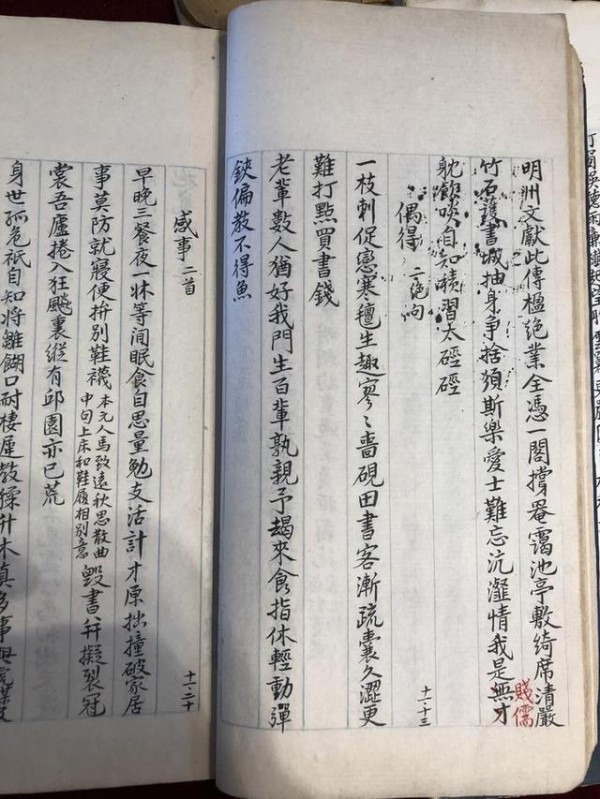 明州文獻此傳楹絕業全憑一閣撐罨靄池亭敷綺席清嚴
竹石護書城抽身爭捨須斯樂愛士難忘沆瀣情我是無才
賤儒
啖自知積習太硜硜
偶得 二絕句 十一·十三
一枝刺促戀寒氊生趣寥〻嗇硯田書客漸疏囊久澀更
難打點買書錢
老輩數人猶好我門生百輩孰親予朅來食指休輕動彈
鋏偏教不得魚
感事二首 十一·二十
早晚三餐夜一牀等閒眠食自思量勉支活計才原拙撞破家居
事莫防就寢便拚別鞋襪
本元人馬致遠秋思散曲
中句上床和鞋履相別意
毀書幷擬裂冠
裳吾廬捲入狂飈裏縱有邱園亦已荒
身世孤危祇自知將雛餬口耐棲遲教猱升木真多事